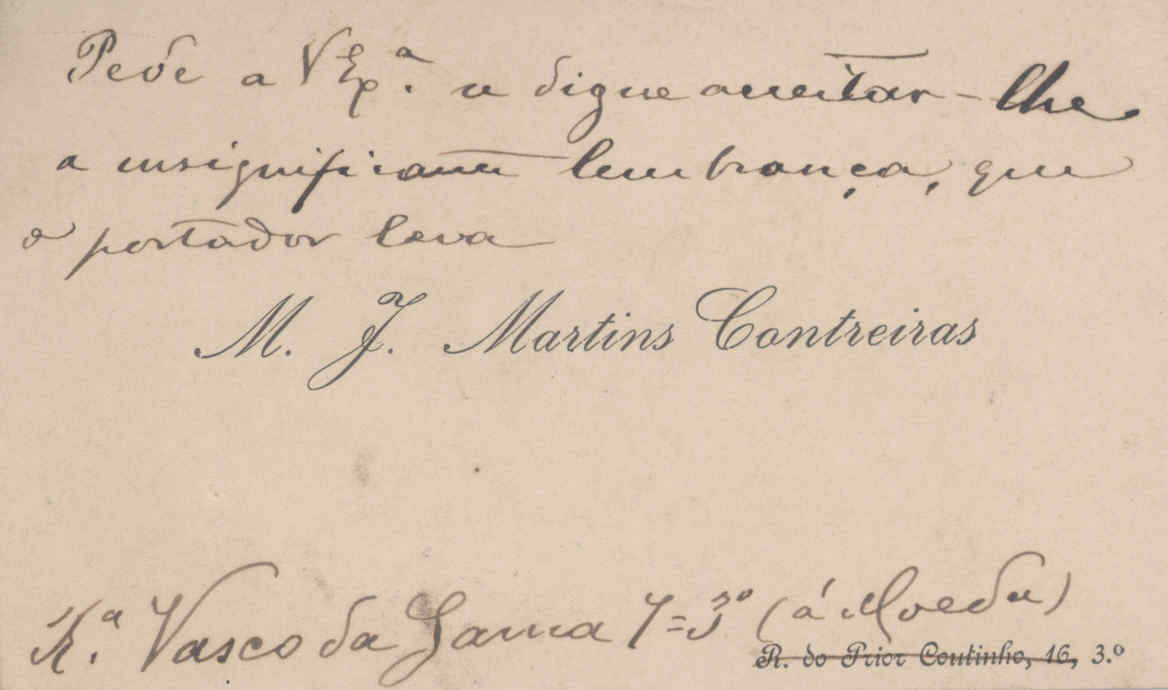 Pede a V Exª. se digne acceitar-lhe
a insignificante lembrança, que
o portador leva
M. J. Martins Contreiras
Rª. Vasco da Gama 7=3º (á Moeda)
R. do Prior Coutinho, 16, 3.º